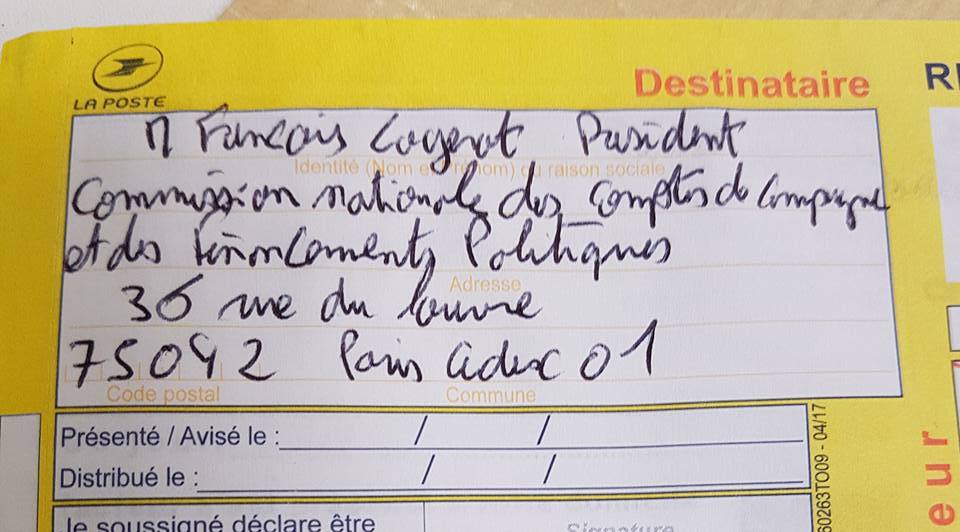 LA POSTE
Destinataire
RE
M Francois Logerot President
Identité (Nom et Prénom) ou raison sociale
Commission nationale des comptes de Campagne
et des Financements Politiques
Adresse
36 rue du Louvre
75042 Paris Cedex 01
Code postal
Commune
Présenté / Avisé le : / /
Distribué le : / /
Je soussigné déclare être
Signature
60263TO09 - 04/17
eur